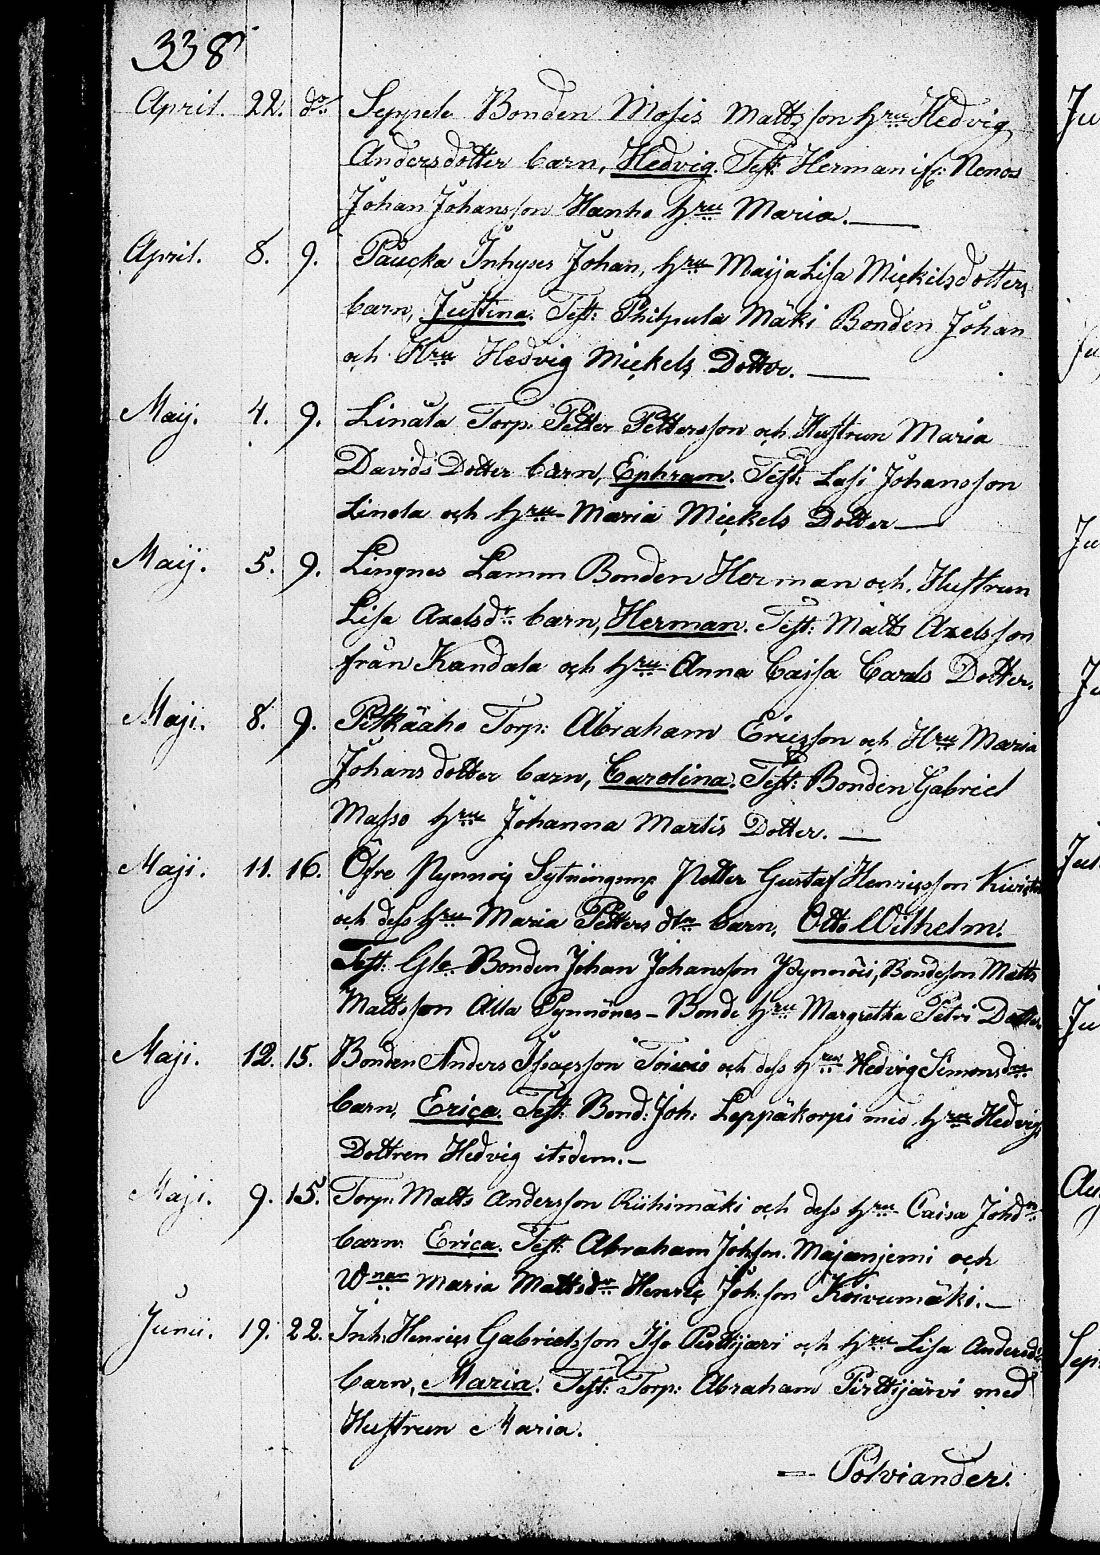 338
April. 22. do Seppele Bonden Mosis Mattsson hru Hedvig
Andersdotter barn, Hedvig. Test: Herman Nonos
Johan Johansson Hanho hru Maria.
April. 8. 9. Paucka Inhyses Johan, hru Maija Lisa Mickelsdotters
barn, Justina. Test: Philpula Mäki Bonden Johan
och Hru Hedvig Mickels Dotter.
Maij. 4. 9. Linäla Torp. Petter Pettersson och Hustrun Maria
Davids Dotter barn, Ephram. Test: Lasi Johansson
Linola och hru Maria Mickels Dotter
Maij. 5. 9. Lingnes Lamm Bonden Herman och Hustrun
Lisa Axelsdr barn, Herman. Test: Matts Axelsson
från Kandala och hru Anna Caisa Carls Dotter.
Maji. 8. 9. Petkäaho Torp: Abraham Ericsson och Hru Maria
Johans dotter barn, Carolina. Test: Bonden Gabriel
Masso hru Johanna Martis Dotter.
Maji. 11. 16. Öfre Pynnöig Sytningm Petter Gustaf Henricsson
och dess hru Maria Petters dtr barn, Otto Wilhelm.
Test. Gle. Bonden Johan Johansson Pynnöis, Bondeson Matts
Mattsson Alla Pynnönes - Bonde hru Margretha Petri Dotter
Maji. 12. 15. Bonden Anders Isacsson Toivio och dess hru Hedvig Simonsdr
barn, Erica. Test: Bond: Joh: Leppäkorpi med hru Hedvig
Dottren Hedvig itsdem.
Maji. 9. 15. Torp: Matts Andersson Riihimäki och dess hru Caisa Johdr
barn Erica. Test: Abraham Johsson. Majaniemi och
Maria Mattsdr Henric Johsson Koivumäki.
Junii. 19. 22. Inh. Henrics Gabrielsson Iso Pirttijärvi och hru Lisa Andersdr
barn, Maria. Test: Torp: Abraham Pirttijärvi med
Hustrun Maria.
Polviander.